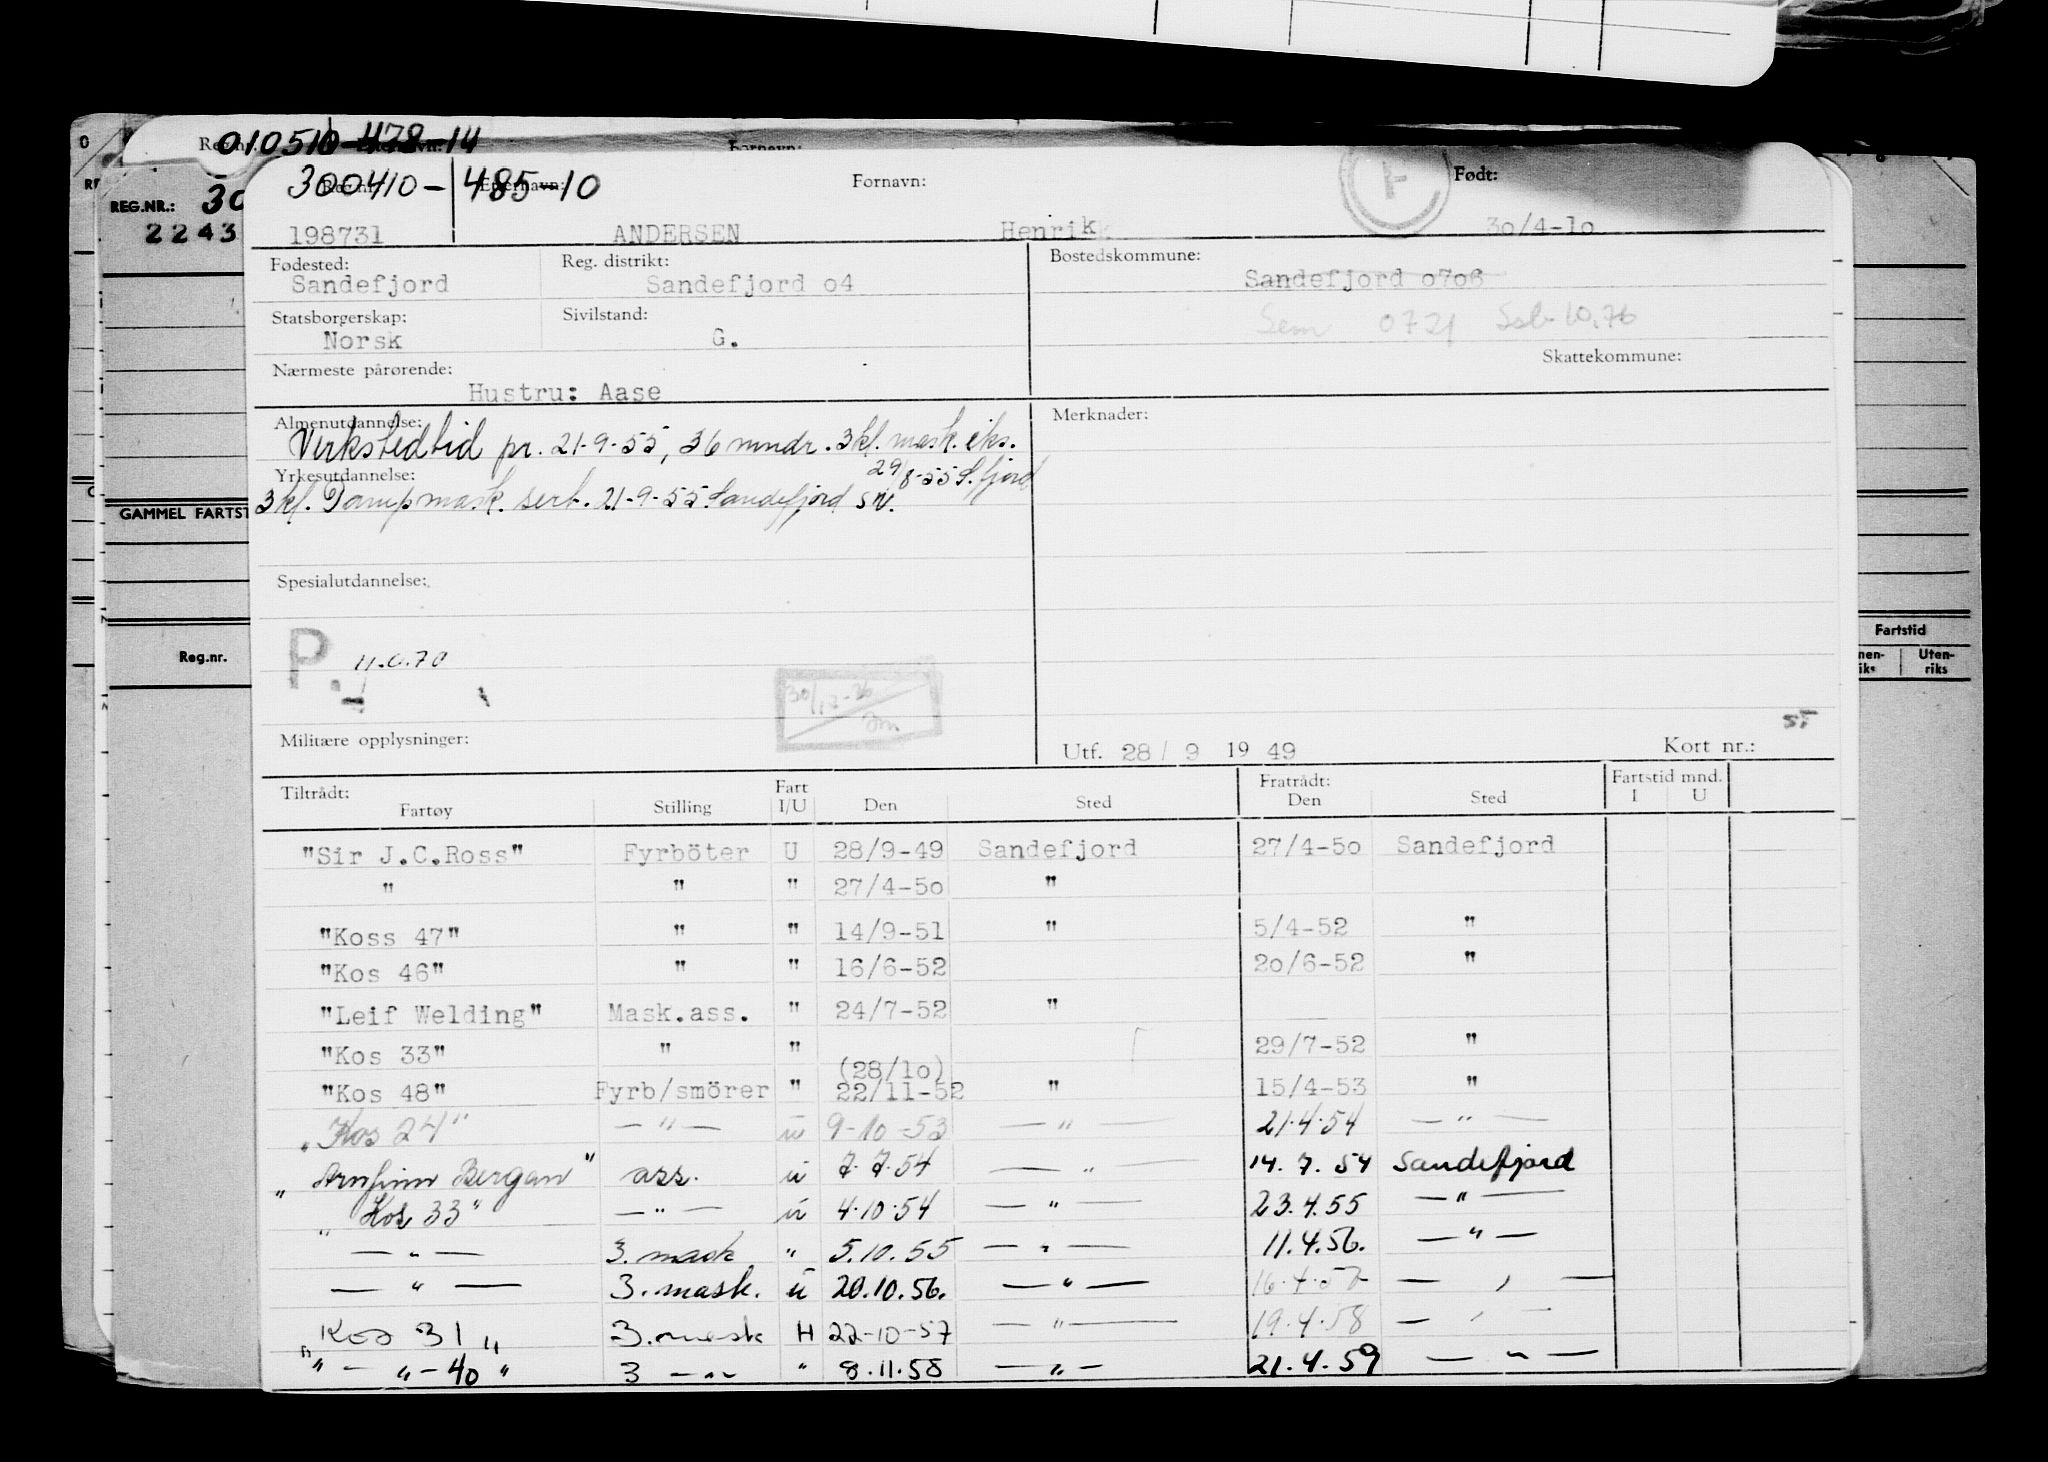 010510-478-14
Fornavn:
300410- 485-10
Reg.nr. Etternavn: Fornavn: Født:
198731 ANDERSEN Henrik 30/4-10
Fødested: Reg. distrikt: Bostedskommune:
Sandefjord Sandefjord 04 Sandefjord 0706
Statsborgerskap: Sivilstand: Sem 0721
Norsk G.
Nærmeste pårørende: Skattekommune:
Hustru: Aase
Almenutdannelse: Merknader:
Verkstedtid pr. 21-9-55, 36 mndr. 3kl. mask. eks.
29/8-55 S.fjord
Yrkesutdannelse:
3kl. Dampmask. sert. 21-9-55 Sandefjord
Spesialutdannelse:
P.
Militære opplysninger: Utf. 28/ 9 19 49 Kort nr.:
Tiltrådt: Fart Fratrådt: Fartstid mnd.
Fartøy Stilling I/U Den Sted Den Sted I U
"Sir J.C.Ross" Fyrböter U 28/9-49 Sandefjord 27/4-50 Sandefjord
" " " 27/4-50 "
"Koss 47" " " 14/9-51 " 5/4-52 "
"Kos 46" " " 16/6-52 20/6-52 "
"Leif Welding" Mask.ass. " 24/7-52 "
"Kos 33" " " 29/7-52 "
(28/10)
"Kos 48" Fyrb/smörer " 22/11-52 " 15/4-53 "
"Kos 24" — " — u 9-10-53 — " — 21.4.54 — " —
"Arnfinn Bergan" ass. u 7.7.54 — " — 14.7.54 Sandefjord
"Kos 33" — " — u 4.10.54 — " — 23.4.55 — " —
— " — 3. mask " 5.10.55 — " — 11.4.56. — " —
— " — 3. mask. u 20.10.56. — " — 16.4.57 — " —
"Kos 31" 3. mask H 22-10-57 — " — 19.4.58 — " —
" — " — 40 " 3 — " — " 8.11.58 — " — 21.4.59 — " —
REG.NR.: 30
2243
GAMMEL FARTST
Reg.nr.
Fartstid
Uten-
riks